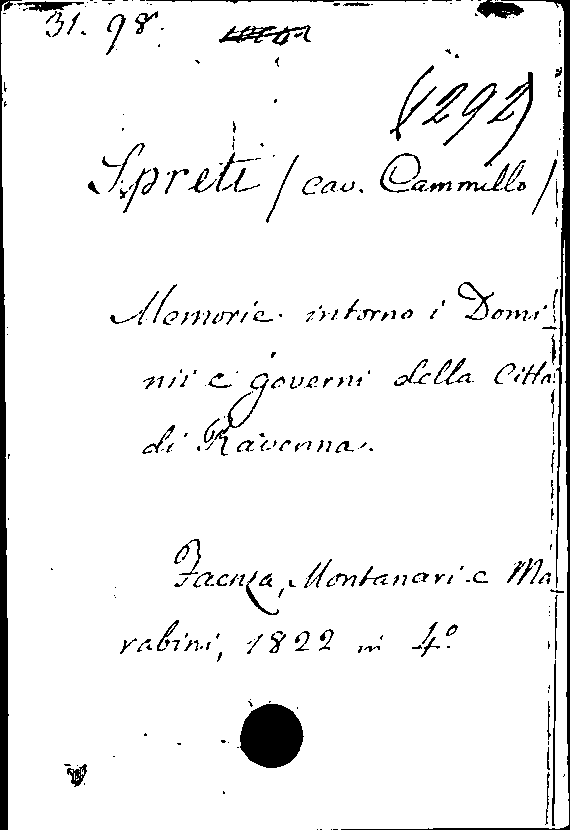 31. 98.
(1292)
Spreti / cav. Cammillo /
Memorie intorno i Domi-
nii e governi della Città
di Ravenna.
Faenza, Montanari e Ma-
rabini, 1822 in 4º